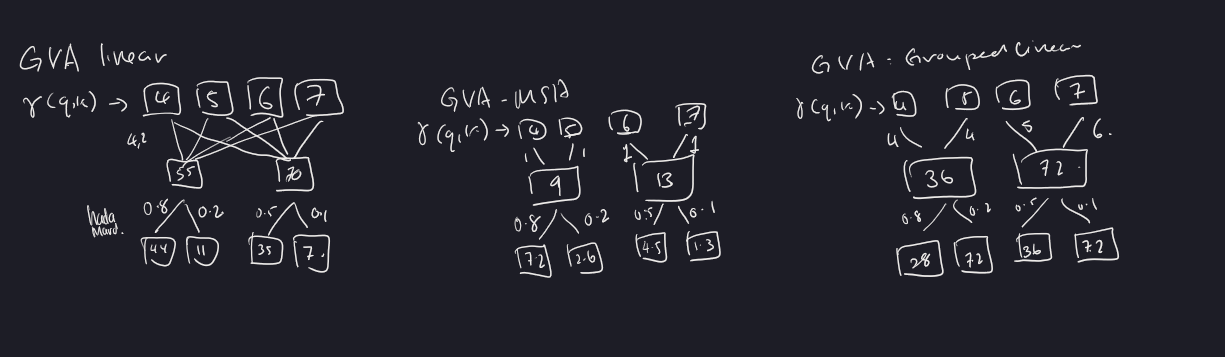 GVA linear
γ(q,k) → 4 5 6 7
4,2
55 70
0.8 0.2 0.5 0.1
44 11 35 7.
GVA - MSA
γ(q,k) → 4 5 6 7
1 1 1 1
9 13
0.8 0.2 0.5 0.1
7.2 2.6 4.5 1.3
GVA - Grouped Linear
γ(q,k) → 4 5 6 7
4 4 5 6.
36 72.
0.8 0.2 0.5 0.1
28 72 36 7.2